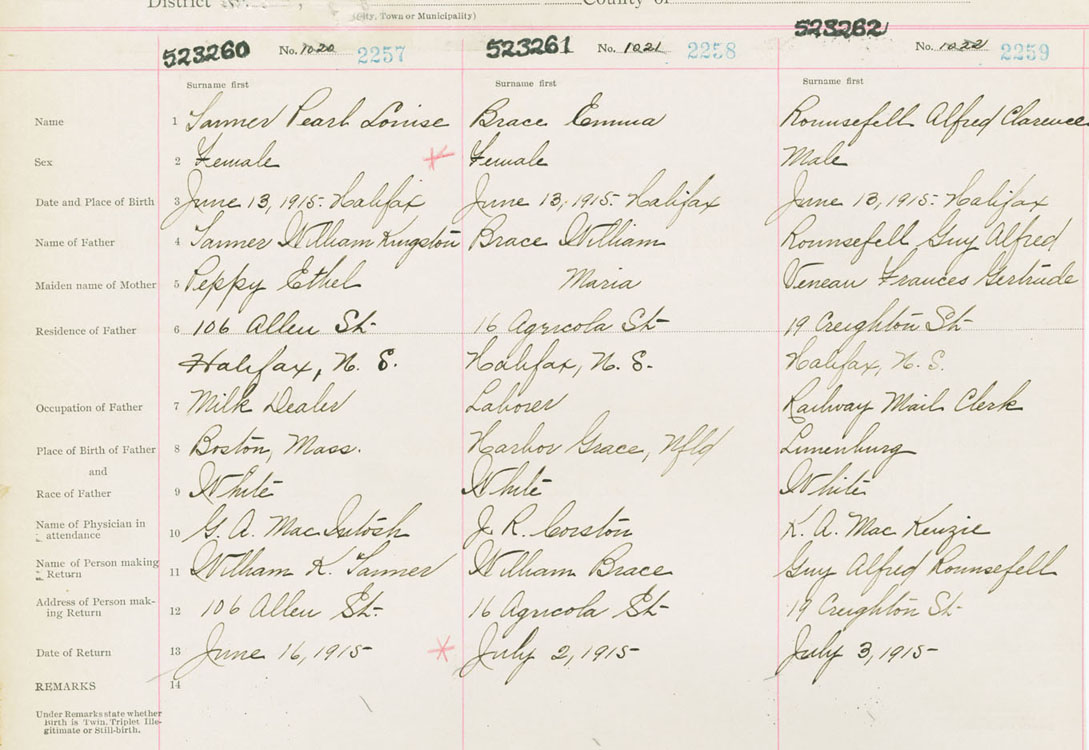 District No. County of
(City, Town or Municipality)
523260 No. 1020 2257 523261 No. 1021 2258 523262 No. 1022 2259
Surname first Surname first Surname first
Name 1 Tanner Pearl Louise Brace Emma Rounsefell Alfred Clarence
Sex 2 Female Female Male
Date and Place of Birth 3 June 13, 1915- Halifax June 13, 1915- Halifax June 13, 1915- Halifax
Name of Father 4 Tanner William Kingston Brace William Rounsefell Guy Alfred
Maiden name of Mother 5 Peppy Ethel Maria Veneau Frances Gertrude
Residence of Father 6 106 Allen St- 16 Agricola St- 19 Creighton St-
Halifax, N. S. Halifax, N. S. Halifax, N. S.
Occupation of Father 7 Milk Dealer Laborer Railway Mail Clerk
Place of Birth of Father 8 Boston, Mass. Harbor Grace, Nfld Lunenburg
and
Race of Father 9 White White White
Name of Physician in
attendance 10 G. A. MacIntosh J. R. Corston K. A. Mac Kenzie
Name of Person making
Return 11 William K. Tanner William Brace Guy Alfred Rounsefell
Address of Person mak-
ing Return 12 106 Allen St- 16 Agricola St- 19 Creighton St-
Date of Return 13 June 16, 1915- July 2, 1915- July 3, 1915-
REMARKS 14
Under Remarks state whether
Birth is Twin, Triplet Ille-
gitimate or Still-birth.